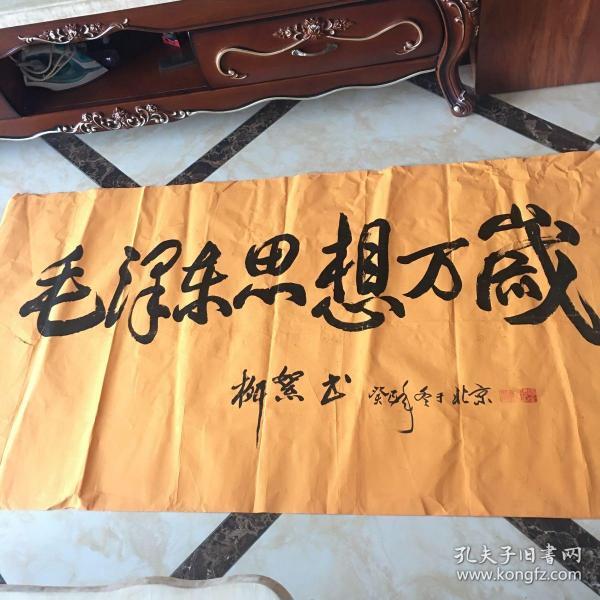 毛泽东思想万岁
柳絮书 癸酉冬于北京
孔夫子旧书网
www.kongfz.com